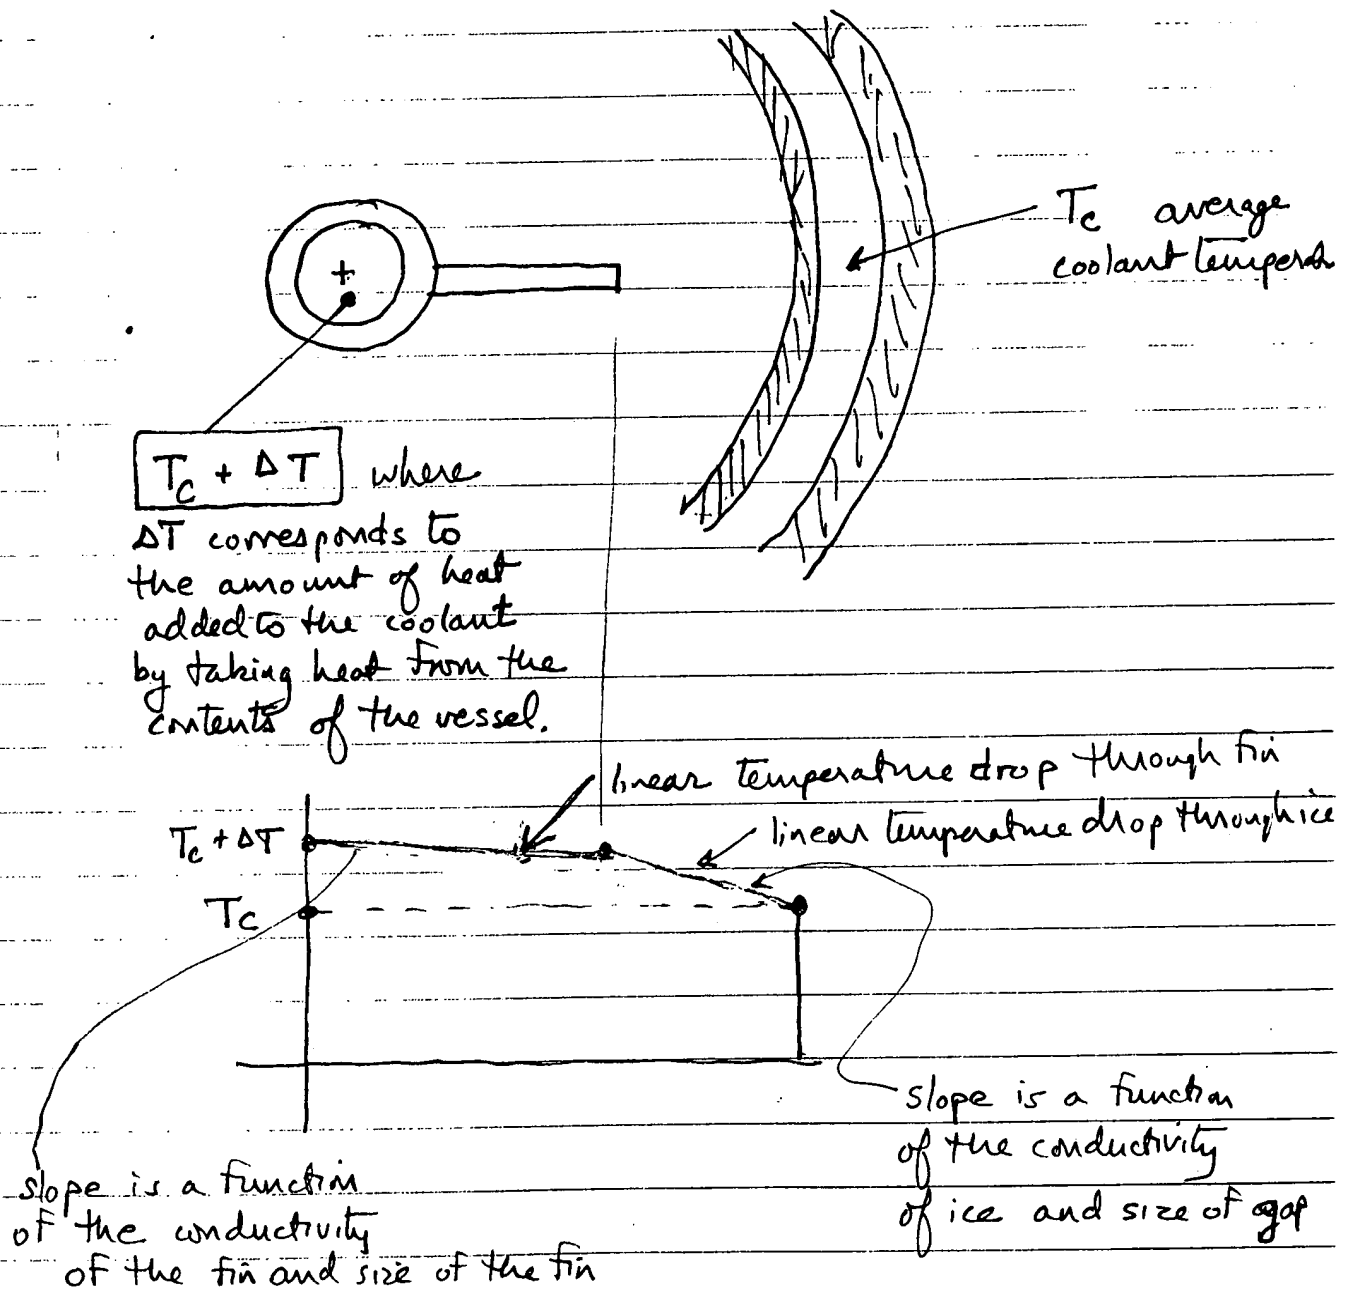 Tc average
coolant temperat
+
Tc + ΔT where
ΔT corresponds to
the amount of heat
added to the coolant
by taking heat from the
contents of the vessel.
linear temperature drop through fin
linear temperature drop through ice
Tc + ΔT
Tc
slope is a function
of the conductivity
of ice and size of gap
slope is a function
of the conductivity
of the fin and size of the fin